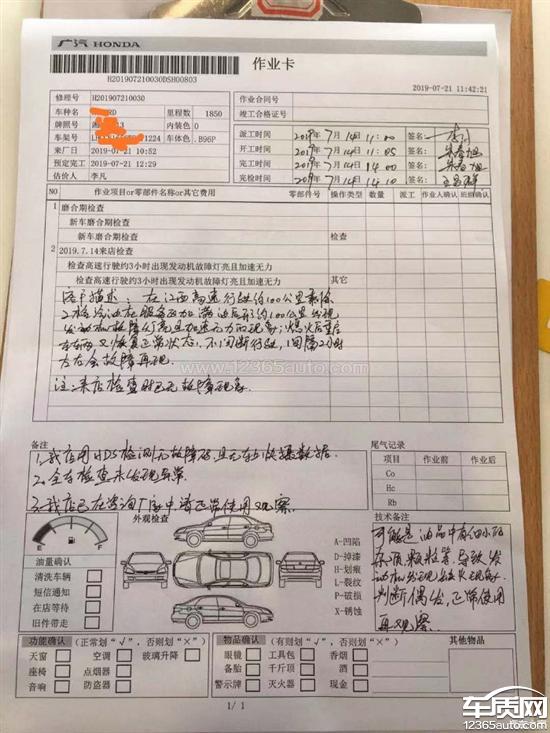 广汽 HONDA
H201907210030DSH00803
作业卡
2019-07-21 11:42:21
修理号 H201907210030
作业合同号
竣工合格证号
车种名 里程数 1850
牌照号 内装色 0
车架号 1224 车体色 B96P
来厂日 2019-07-21 10:52
预定完工 2019-07-21 12:29
估价人 李凡
派工时间 2019年 7月 14 11:00 签名
开工时间 2019年 7月 14 11:05 签名
完工时间 2019年 7月 14 14:00 签名
完检时间 2019年 7月 14 14:10 签名
NO 作业项目or零部件名称or其它费用 零部件号 操作类型 数量 派工 作业人确认 班组确认
1 磨合期检查
新车磨合期检查
新车磨合期检查 检查
2 2019.7.14来店检查
检查高速行驶约3小时出现发动机故障灯亮且加速无力
检查高速行驶约3小时出现发动机故障灯亮且加速无力 其它
客户描述：在江西高速行驶约100公里
发动机故障灯亮且加速无力的现象；熄火后重启
又恢复正常状态，不间断行驶，间隔2小时
左右会故障再现
注：来店检查时已无故障现象。
www.12365auto.com
备注
1.我店用HDS检测无故障码，且无车上快摄数据。
2.全车检查未发现异常
3.我店已在咨询厂家中，请正常使用观察。
尾气记录
项目 作业前 作业后
Co
Hc
Rb
外观检查
E F
油量确认
清洗车辆
短信通知
在店等待
旧件带走
A-凹陷
D-掉漆
H-划痕
L-裂纹
P-破损
X-锈蚀
技术备注
可能是油品中有细小的
杂质颗粒等，导致发
动机
判断偶发，正常使用
再观察。
功能确认 （正常划“√”，否则划“×”）
天窗 空调 玻璃升降
座椅 点烟器
音响 防盗器
物品确认 （有则划“√”，否则划“×”）
眼镜 工具包 香烟
备胎 千斤顶 酒
警示牌 灭火器 现金
其他物品
1/ 1
车质网
12365auto.com